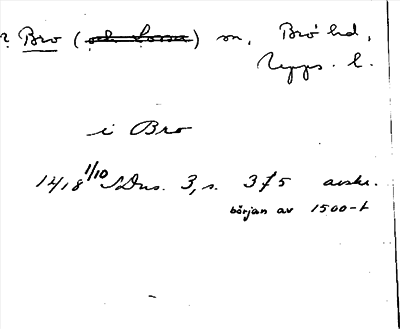 ? Bro (och Lossa) sn, Bro hd,
Uppps. l.
i Bro
1418 1/10 SDns. 3, s. 375 avskr.
början av 1500-t